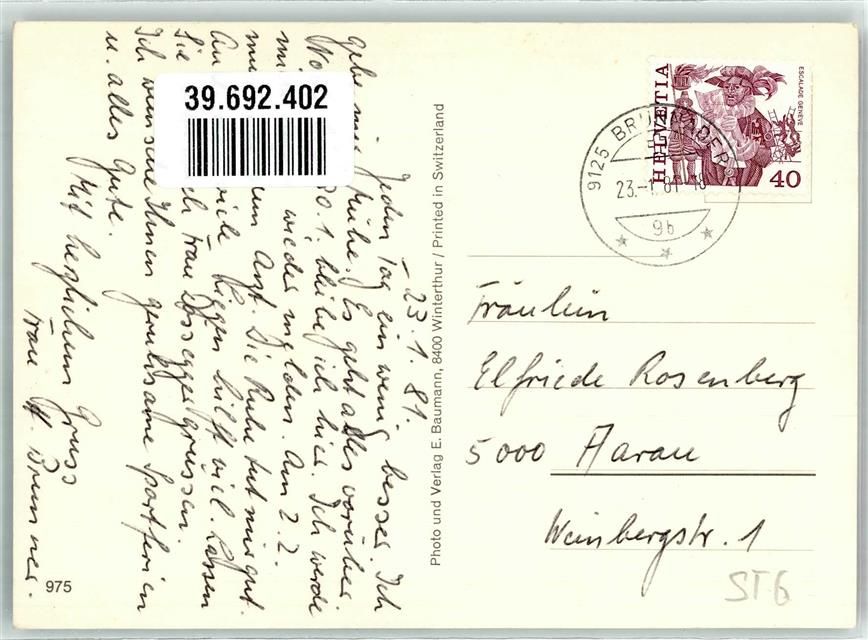 39.692.402
- 23.1.81.
Jeden Tag ein wenig besser. Ich
gebe mir Mühe. Es geht alles vorüber.
30.1. bleibe ich hier. Ich werde
wieder melden. Am 2.2.
zum Arzt. Die Ruhe tut mir gut.
viele liegen hilft viel. Lassen
Sie Frau Dössegger grüssen.
Ich wünsche Ihnen geruhsame Sportferien
u. alles Gute.
Mit herzlichem Gruss
Frau H. Brunner.
975
Photo und Verlag E. Baumann, 8400 Winterthur / Printed in Switzerland
HELVETIA
ESCALADE GENÈVE
40
9125 BRUNNADERN
23.-1.81-18
9b
Fräulein
Elfriede Rosenberg
5000 Aarau
Weinbergstr. 1
ST6